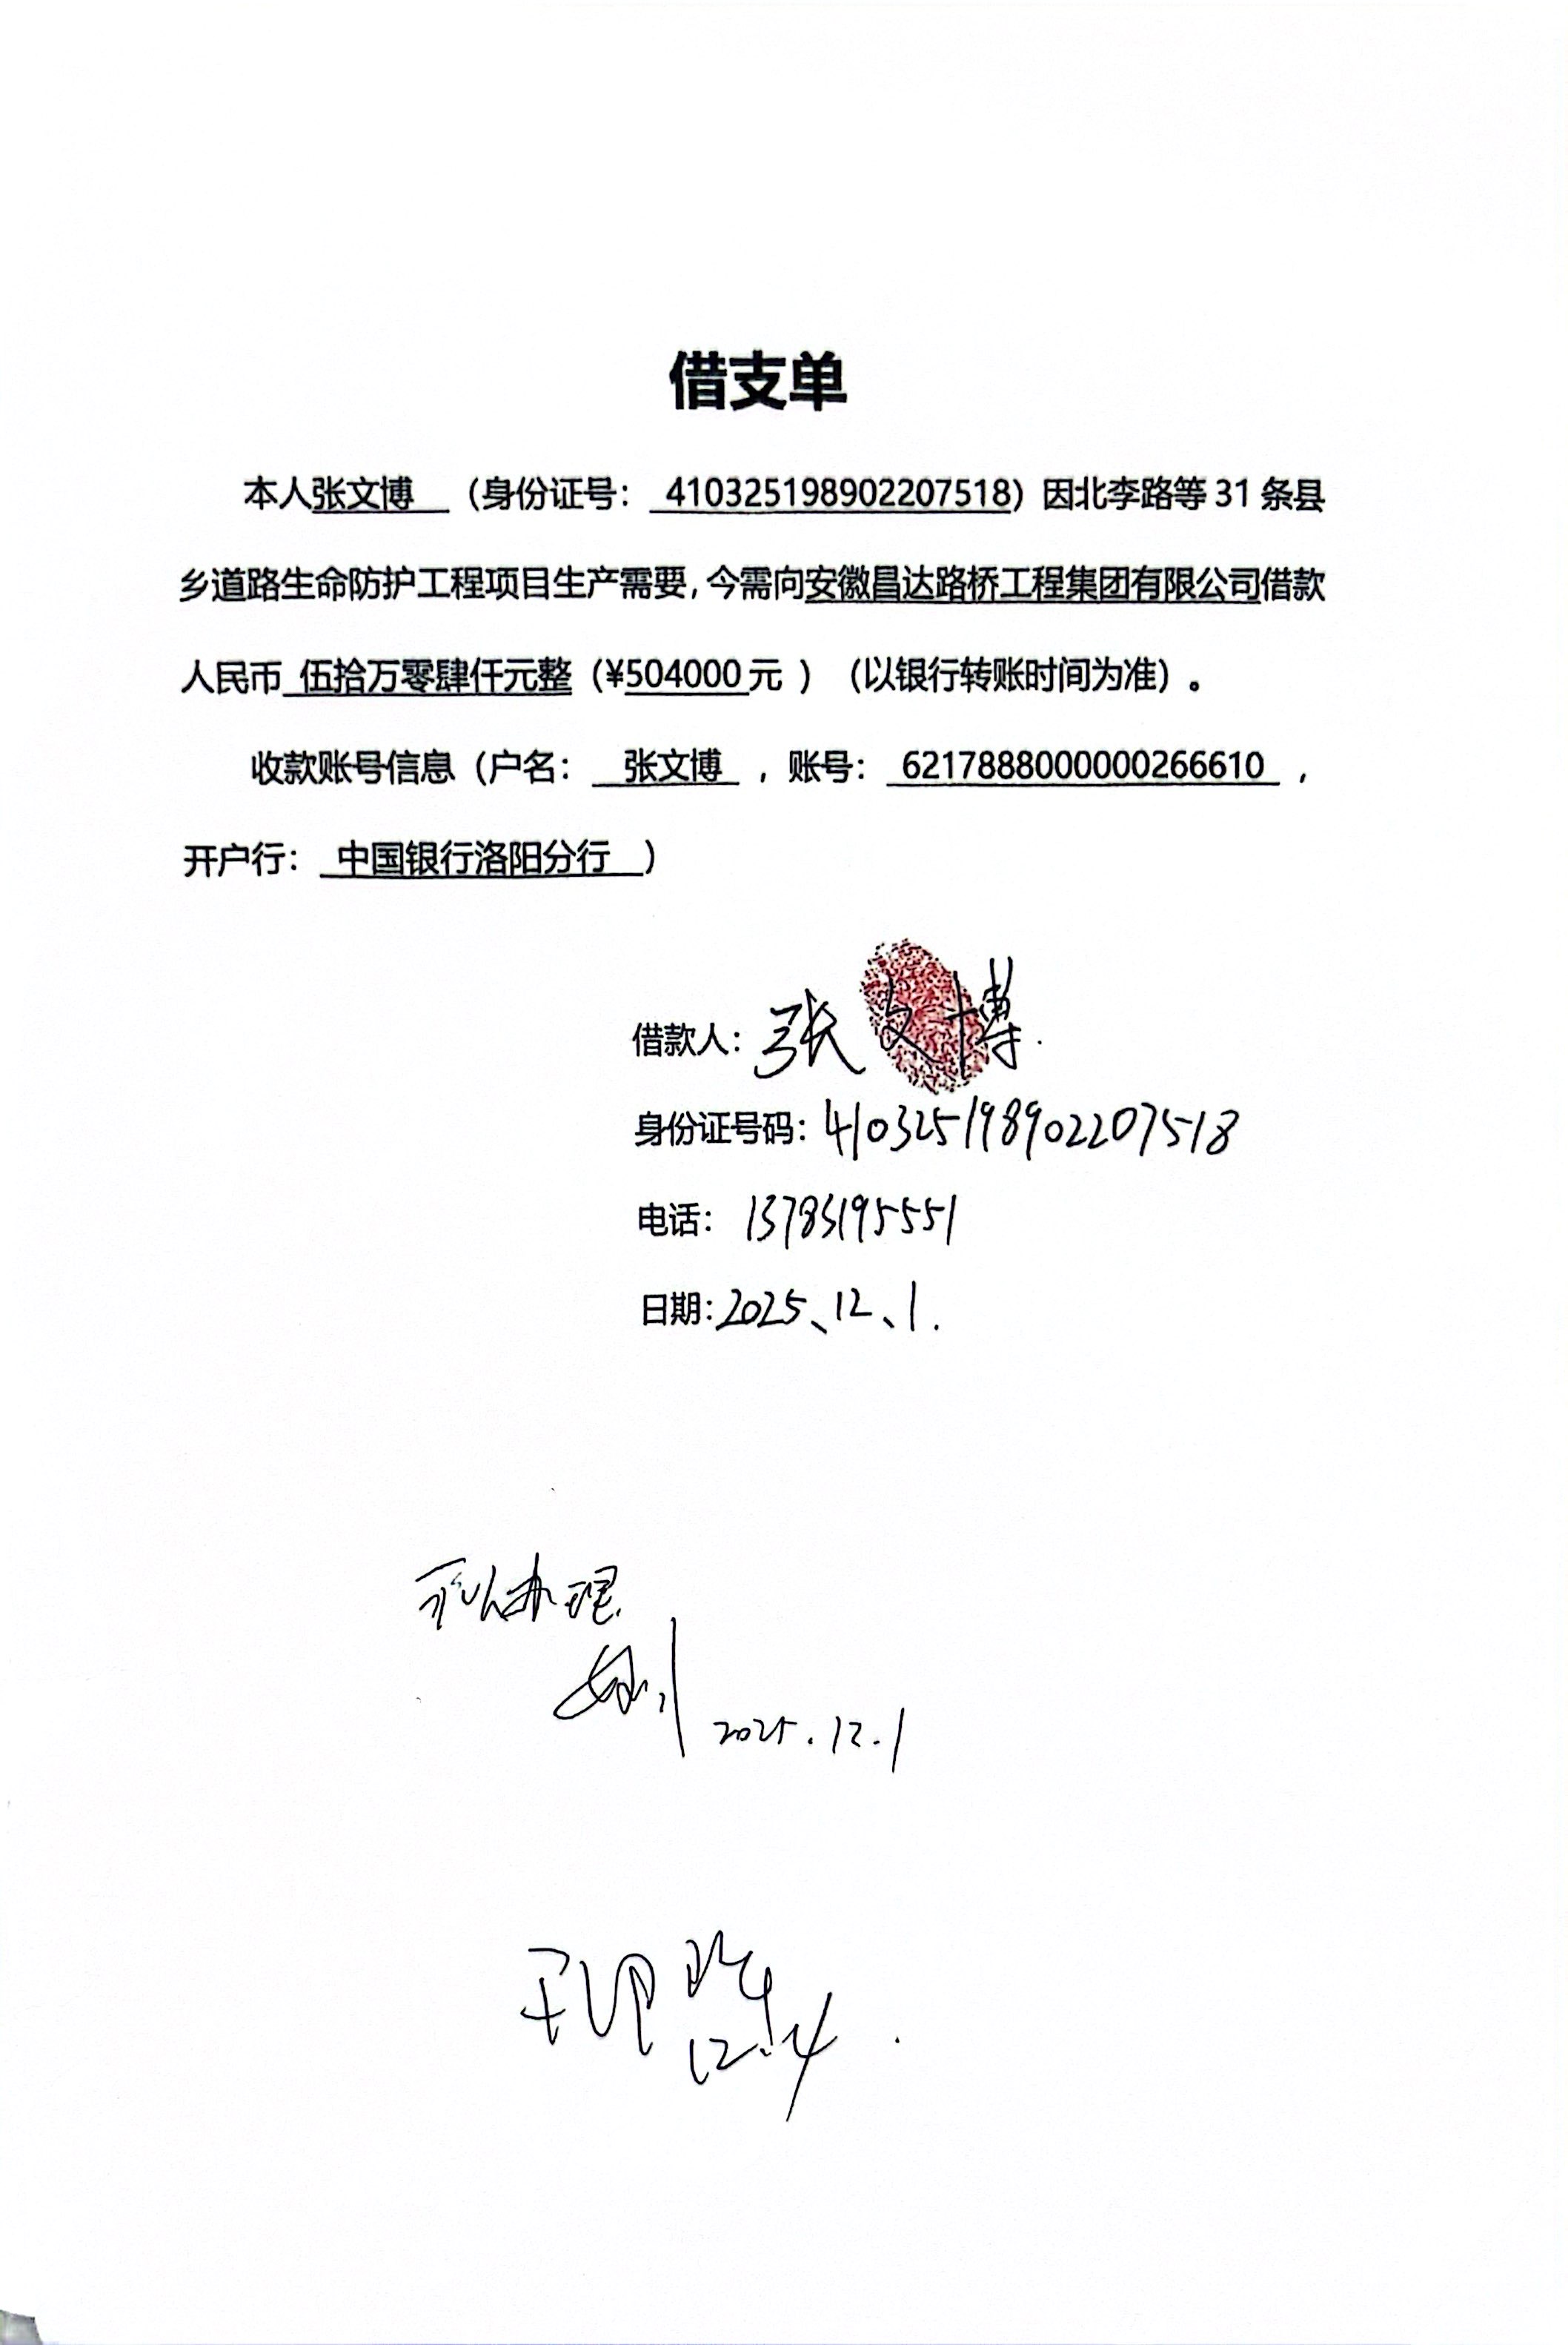 借支单
本人张文博 （身份证号： 410325198902207518）因北李路等 31 条县
乡道路生命防护工程项目生产需要，今需向安徽昌达路桥工程集团有限公司借款
人民币 伍拾万零肆仟元整（¥504000 元 ）（以银行转账时间为准）。
收款账号信息（户名： 张文博 ，账号： 6217888000000266610 ，
开户行： 中国银行洛阳分行 ）
借款人：张文博.
身份证号码：410325198902207518
电话：13783195551
日期：2025、12、1.
可以办理
2025.12.1
12.4